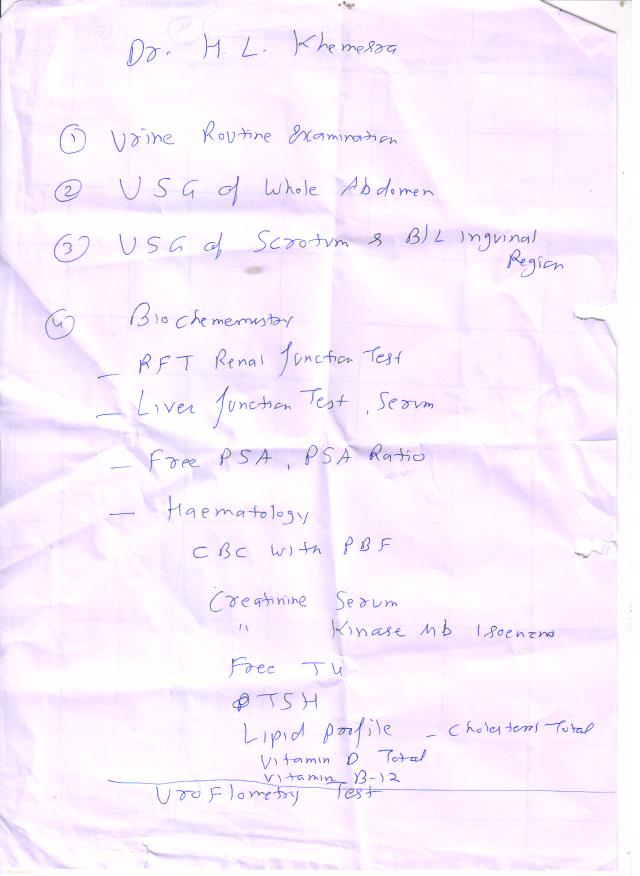 Dr. H. L. Khemesra
① Urine Routine Examination
② USG of Whole Abdomen
③ USG of Scrotum & B/L Inguinal
Region
④ Biochememistry
- RFT Renal function Test
- Liver function Test, Serum
- Free PSA, PSA Ratio
- Haematology
CBC with PBF
Creatinine Serum
" Kinase Mb Isoenzm
Free T4
TSH
Lipid profile - Cholesterol Total
Vitamin D Total
Vitamin B-12
Uro Flometry Test